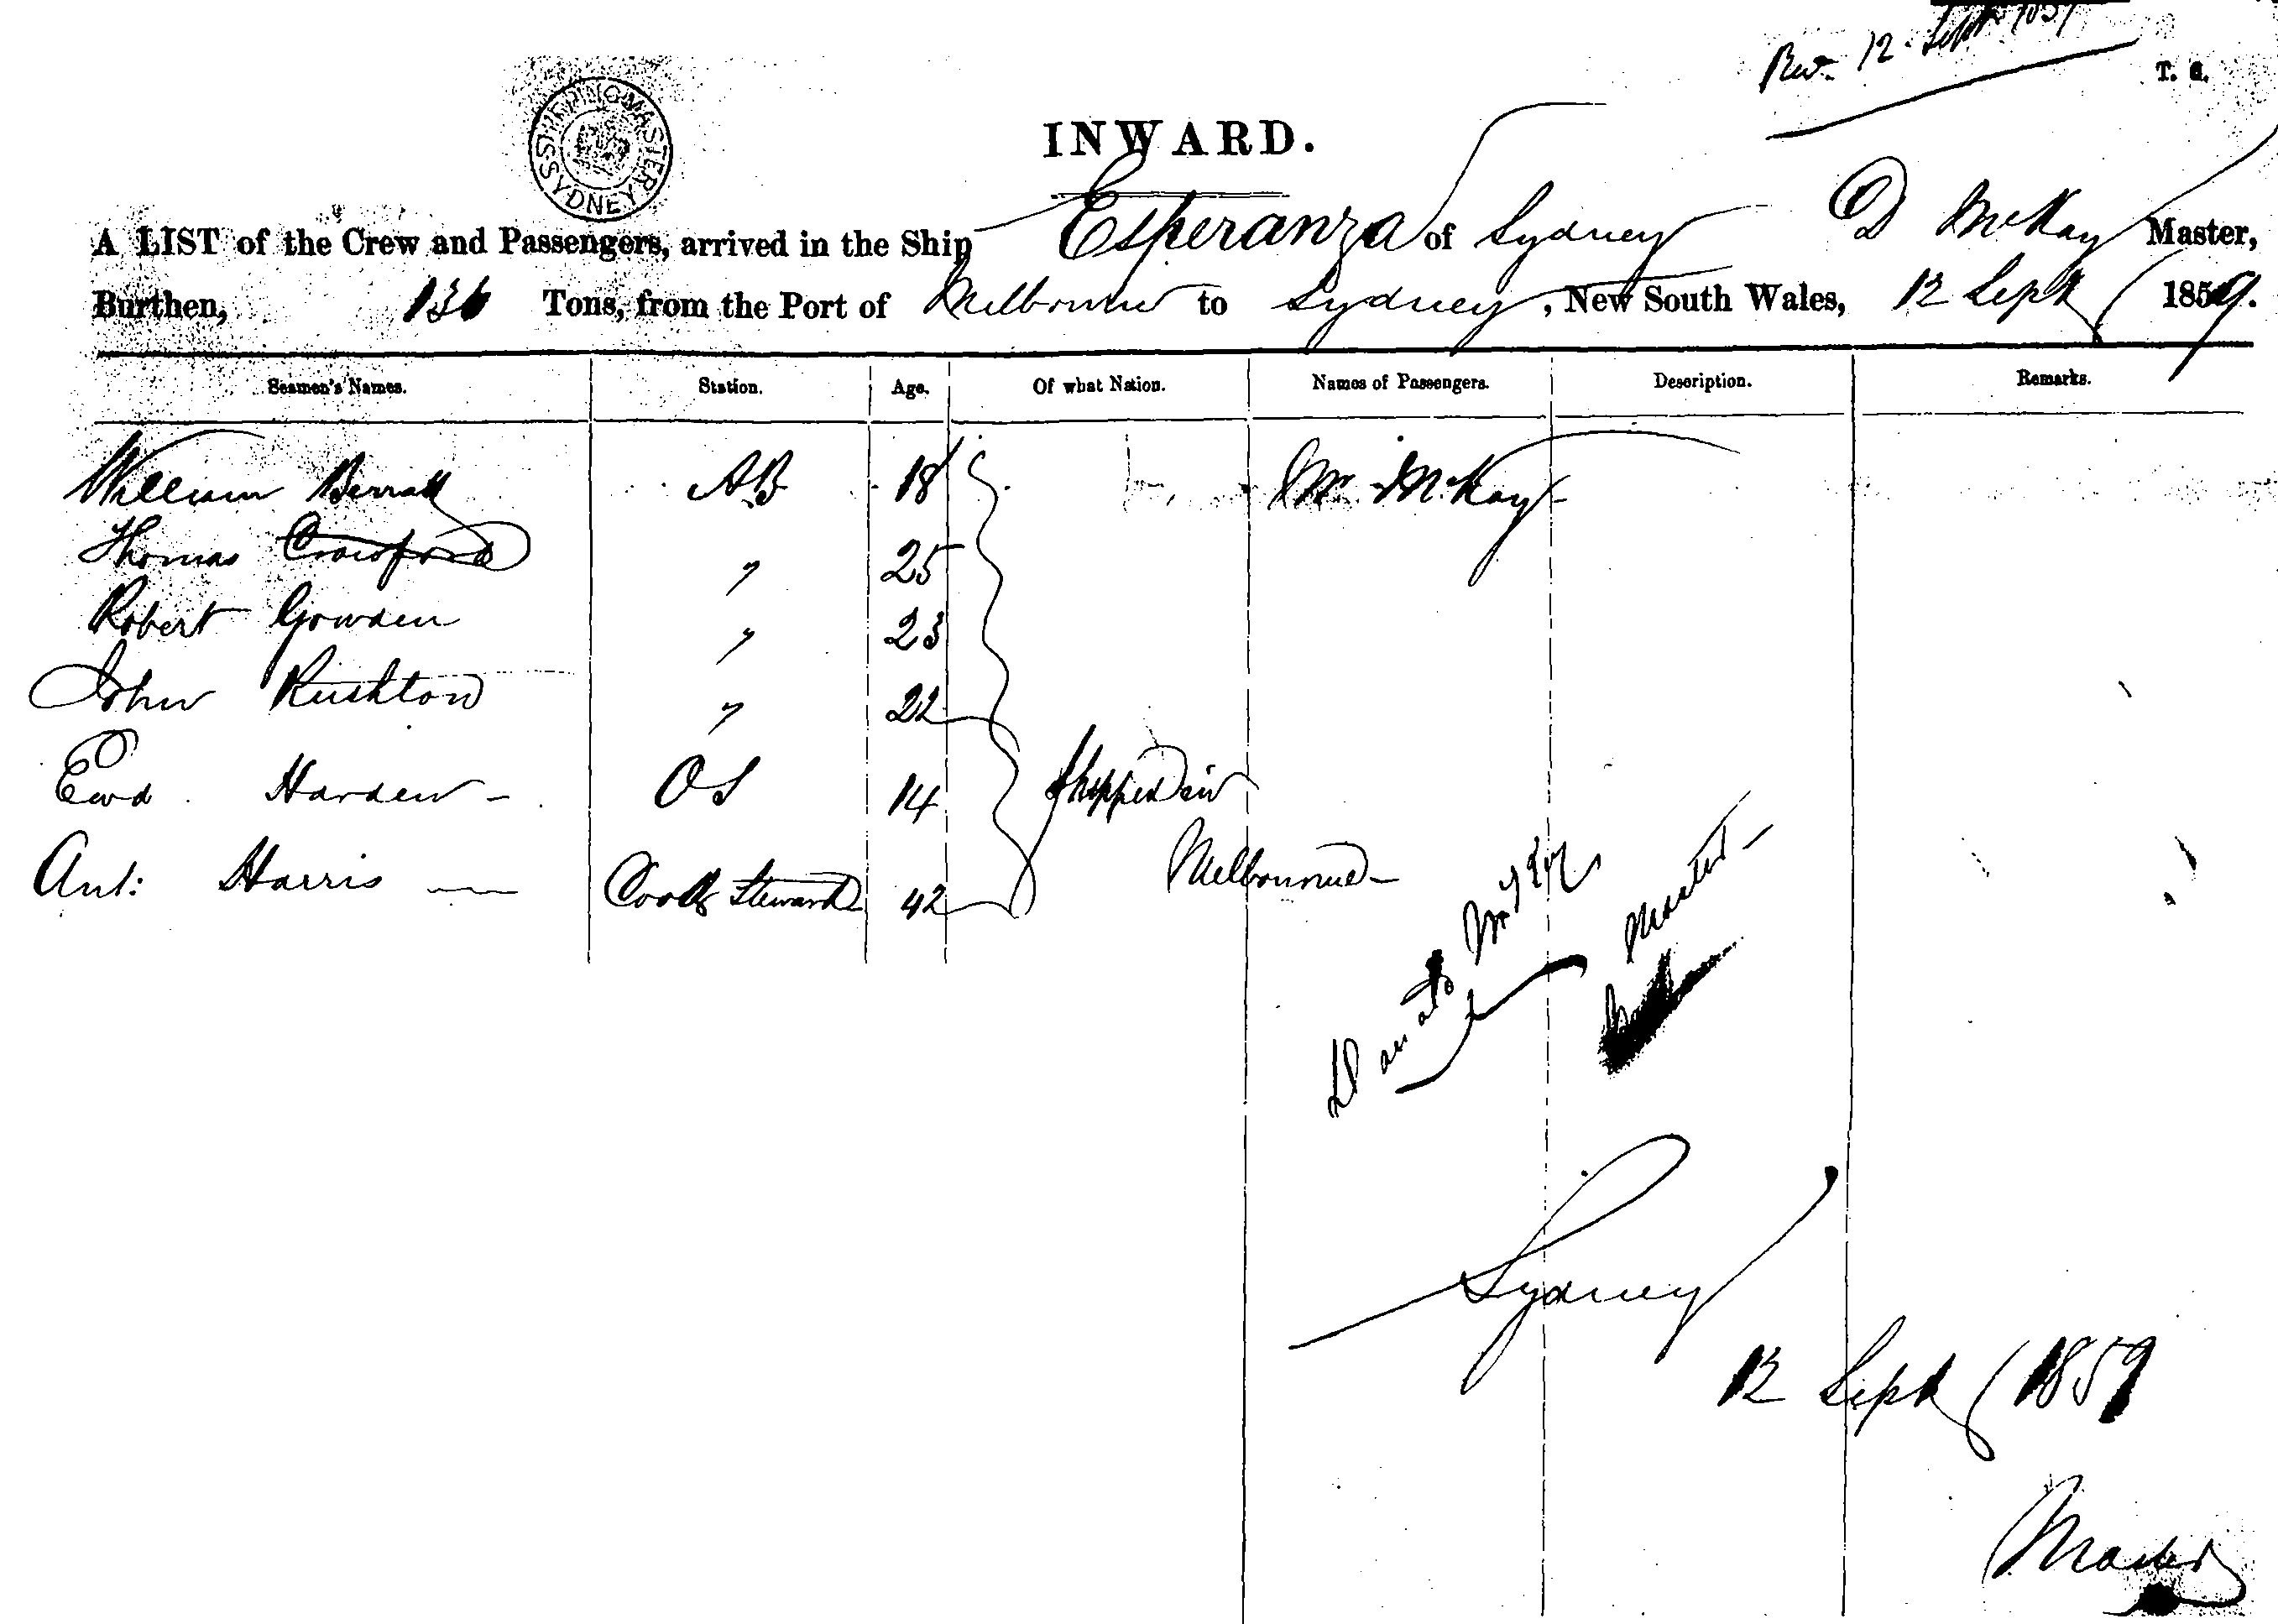 Rec. 12 Sept 1859
T. G.
SHIPPING MASTER SYDNEY
INWARD.
A LIST of the Crew and Passengers, arrived in the Ship Esperanza of Sydney D McKay Master,
Burthen, 136 Tons, from the Port of Melbourne to Sydney, New South Wales, 12 Sept 1859.
Seamen's Names. Station. Age. Of what Nation. Names of Passengers. Description. Remarks.
William AB 18 Mr McKay
Thomas Crawford " 25
Robert Gowden " 23
John Rushton " 22
Ewd Harden - OS 14 Shipped in
Ant: Harris — Cook & Steward 42 Melbourne -
Donald McKay
Master -
Sydney
12 Sept 1859
Master